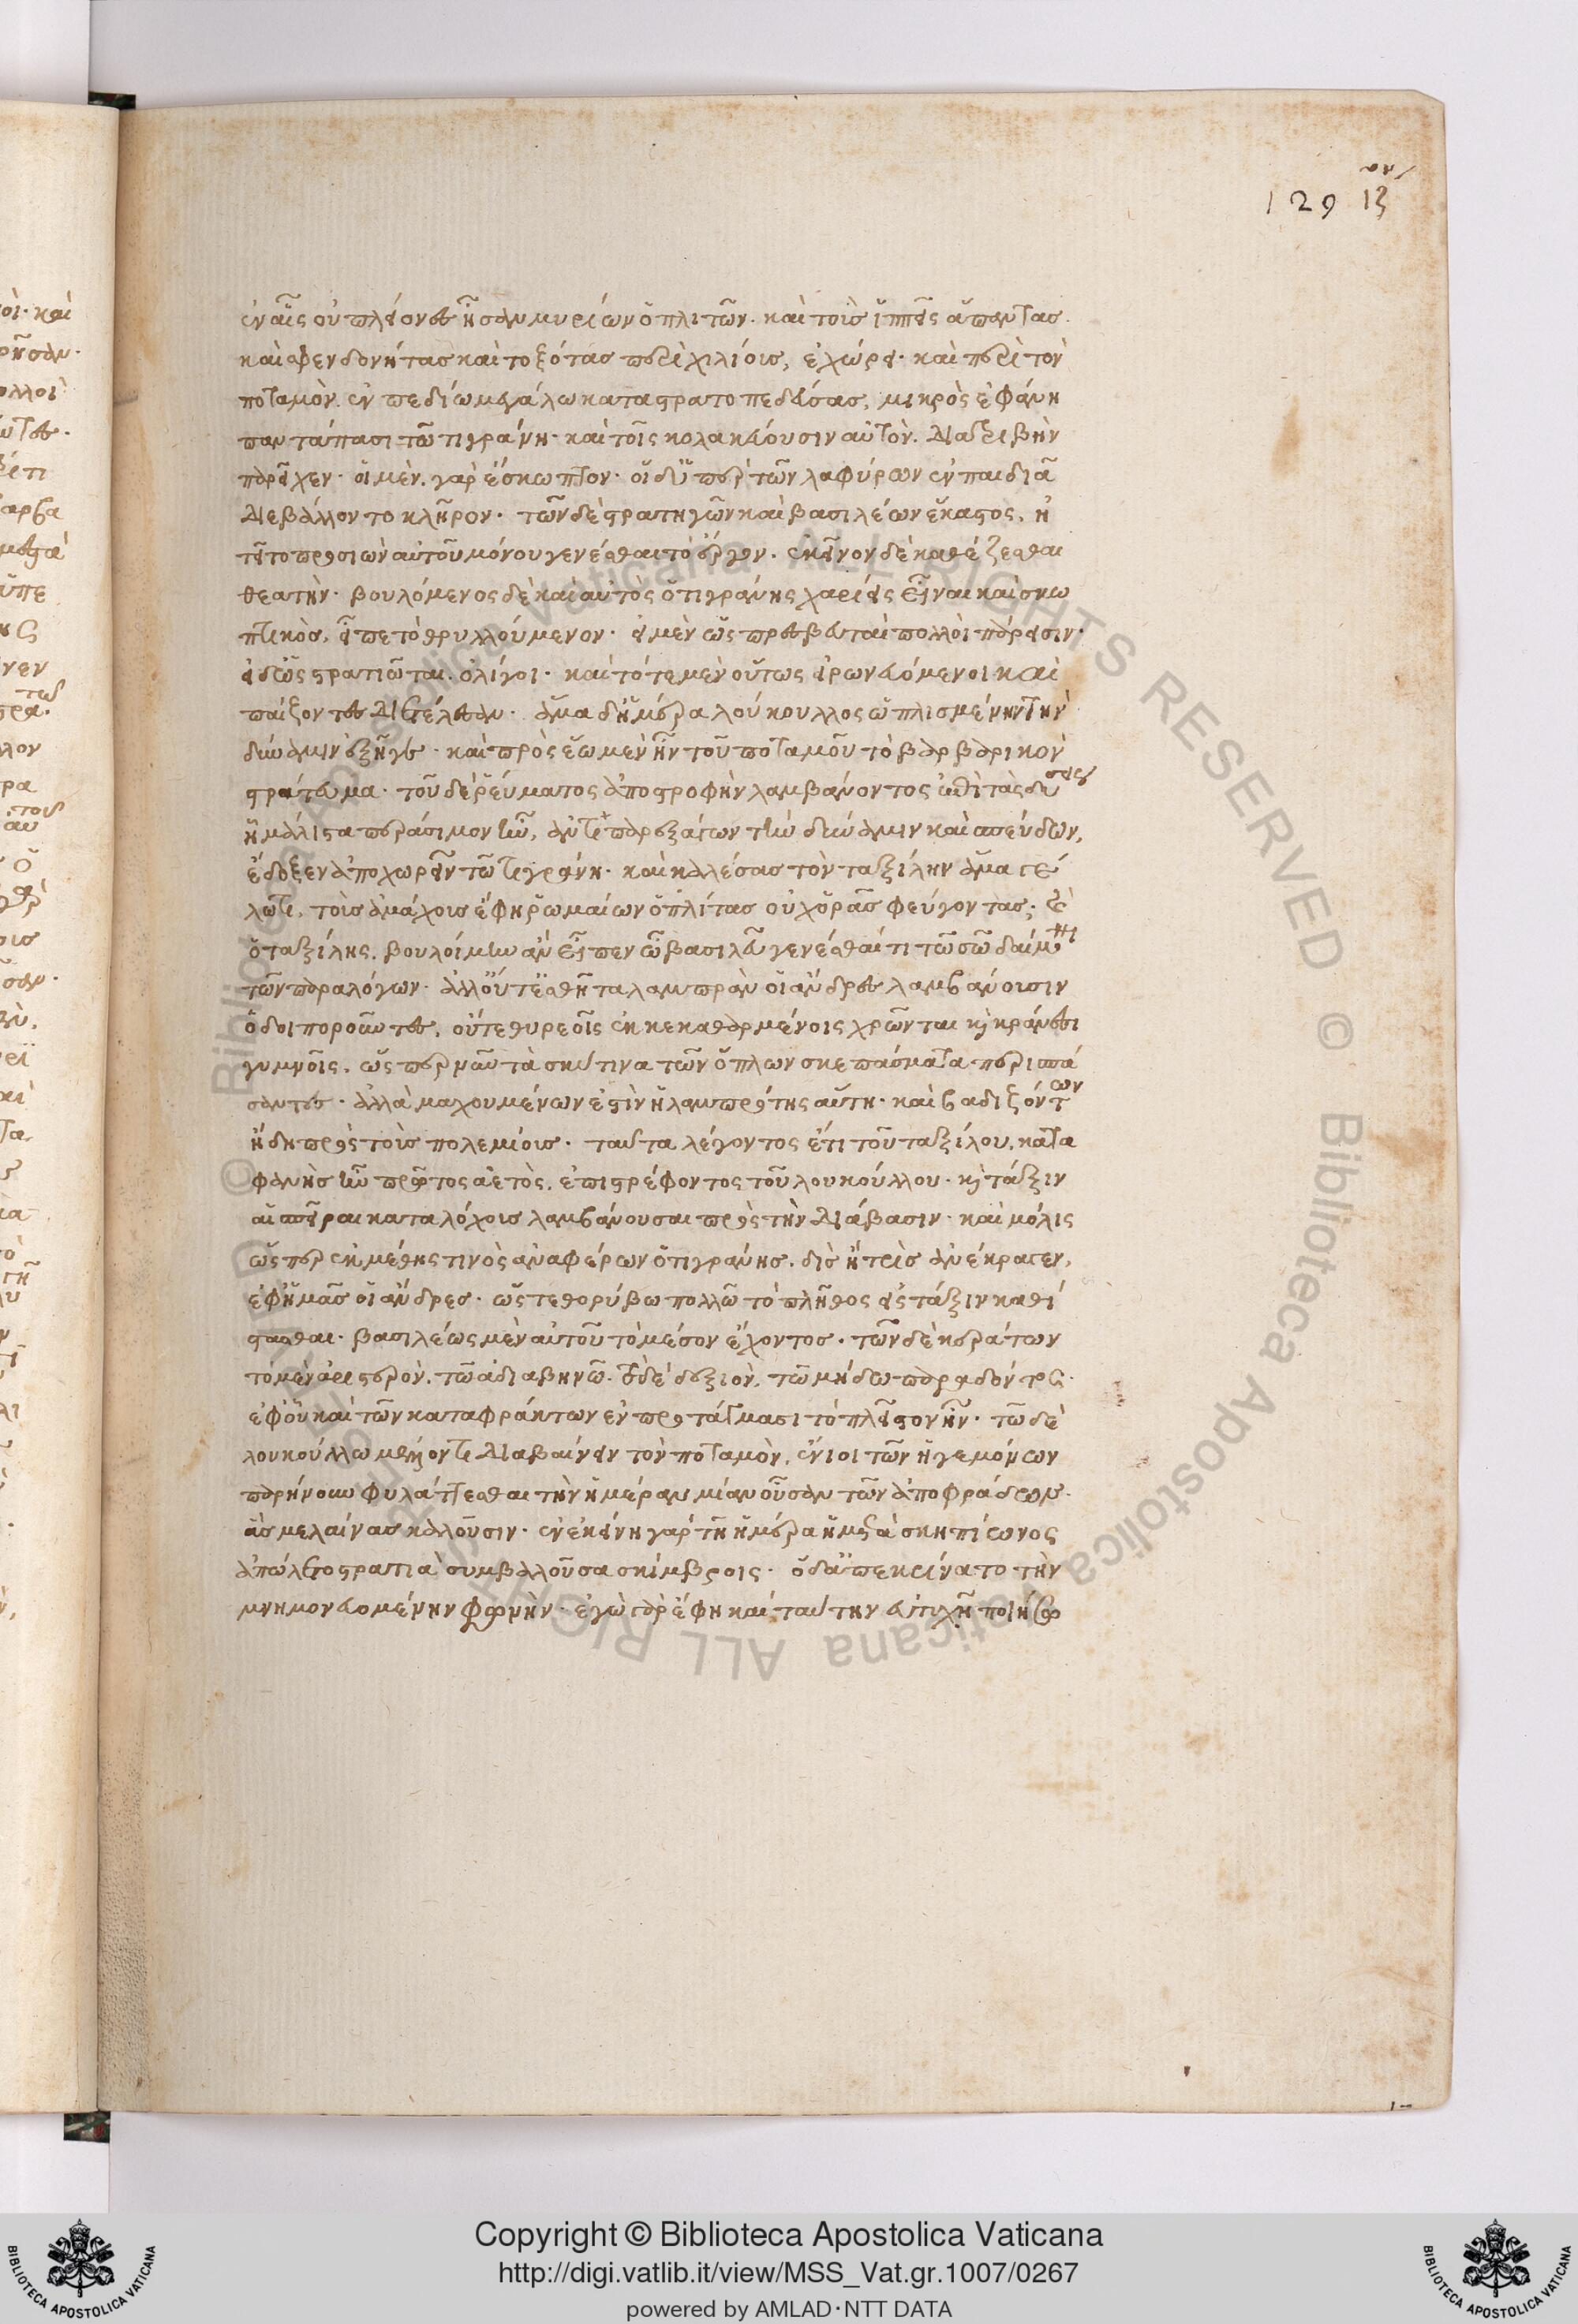 129 13
ἐν αἷς οὐ πλείονες ἦσαν μυρίων ὁπλιτῶν. καὶ τοὺς ἱππεῖς ἅπαντας.
καὶ σφενδονήτας καὶ τοξότας περὶ χιλίους, ἐχώρει. καὶ περὶ τὸν
ποταμὸν. ἐν πεδίω μεγάλω καταστρατοπεδεύσας, μικρὸς ἐφάνη
παντάπασι τῶ τιγράνη. καὶ τοῖς κολακεύουσιν αὐτὸν. διατριβὴν
παρεῖχεν. οἱ μὲν. γὰρ ἔσκωπτον. οἱ δ' ὑπὲρ τῶν λαφύρων ἐν παιδιᾶ
διεβάλλοντο κλῆρον. τῶν δὲ στρατηγῶν καὶ βασιλέων ἕκαστος, ἠ
τεῖτο προσιὼν αὐτοῦ μόνου γενέσθαι τὸ ἔργον. ἐκεῖνον δὲ καθέζεσθαι
θεατὴν. βουλόμενος δὲ καὶ αὐτὸς ὁ τιγράνης χαρίεις εἶναι καὶ σκω
πτικὸς, εἶπε τὸ θρυλλούμενον. εἰ μὲν ὡς πρεσβευταὶ πολλοὶ πάρεισιν.
εἰ δ' ὡς στρατιῶται. ὀλίγοι. καὶ τότε μὲν οὕτως εἰρωνευόμενοι καὶ
παίζοντες διετέλεσαν. ἅμα δ' ἡμέρα λούκουλλος ὡπλισμένην τὴν
δύναμιν ἐξῆγε. καὶ πρὸς ἕω μὲν ἦν τοῦ ποταμοῦ τὸ βαρβαρικὸν
στράτευμα. τοῦ δὲ ῥεύματος ἀποστροφὴν λαμβάνοντος ἐπὶ τὰς δύσεις
ἧ μάλιστα περάσιμον ἦν, ἀντιπαρεξάγων τὴν δύναμιν καὶ σπεύδων,
ἔδοξεν ἀποχωρεῖν τῶ τιγράνη. καὶ καλέσας τὸν ταξίλην ἅμα γέ
λωτι, τοὺς ἀμάχους ἔφη ῥωμαίων ὁπλίτας οὐχ ὁρᾶς φεύγοντας; καὶ
ὁ ταξίλης. βουλοίμην ἂν εἶπεν ὦ βασιλεῦ γενέσθαι τι τῶ σῶ δαίμονι
τῶν παραλόγων. ἀλλ' οὔτ' ἐσθῆτα λαμπρὰν οἱ ἄνδρες λαμβάνουσιν
ὁδοιποροῦντες, οὔτε θυρεοῖς ἐκκεκαθαρμένοις χρῶνται καὶ κράνεσι
γυμνοῖς. ὥσπερ νῦν τὰ σκύτινα τῶν ὅπλων σκεπάσματα περισπά
σαντες. ἀλλὰ μαχουμένων ἐστὶν ἡ λαμπρότης αὕτη. καὶ βαδιζόντων
ἤδη πρὸς τοὺς πολεμίους. ταῦτα λέγοντος ἔτι τοῦ ταξίλου, κατα
φανὴς ἦν πρῶτος ἀετὸς. ἐπιστρέφοντος τοῦ λουκούλλου. καὶ τάξιν
αἱ σπεῖραι κατὰ λόχους λαμβάνουσαι πρὸς τὴν διάβασιν. καὶ μόλις
ὥσπερ ἐκ μέθης τινὸς ἀναφέρων ὁ τιγράνης. δὶς ἢ τρὶς ἀνέκραγεν,
ἐφ' ἡμᾶς οἱ ἄνδρες. ὥστε θορύβω πολλῶ τὸ πλῆθος εἰς τάξιν καθί
στασθαι. βασιλέως μὲν αὐτοῦ τὸ μέσον ἔχοντος. τῶν δὲ κεράτων
τὸ μὲν ἀριστερὸν. τῶ ἀδιαβηνῶ. τὸ δὲ δεξιὸν. τῶ μήδω παραδόντος.
ἐφ' οὗ καὶ τῶν καταφράκτων ἐν προτάγμασι τὸ πλεῖστον ἦν. τῶ δὲ
λουκούλλω μέλλοντι διαβαίνειν τὸν ποταμὸν, ἔνιοι τῶν ἡγεμόνων
παρήνουν φυλάττεσθαι τὴν ἡμέραν μίαν οὖσαν τῶν ἀποφράδων.
ἃς μελαίνας καλοῦσιν. ἐν ἐκείνη γὰρ τῆ ἡμέρα ἡ μετὰ σκηπίωνος
ἀπώλετο στρατιὰ συμβαλοῦσα κίμβροις. ὁ δ' ἀπεκρίνατο τὴν
μνημονευομένην φωνὴν. ἐγὼ γὰρ ἔφη καὶ ταύτην εὐτυχῆ ποιήσω
Copyright © Biblioteca Apostolica Vaticana
http://digi.vatlib.it/view/MSS_Vat.gr.1007/0267
powered by AMLAD·NTT DATA